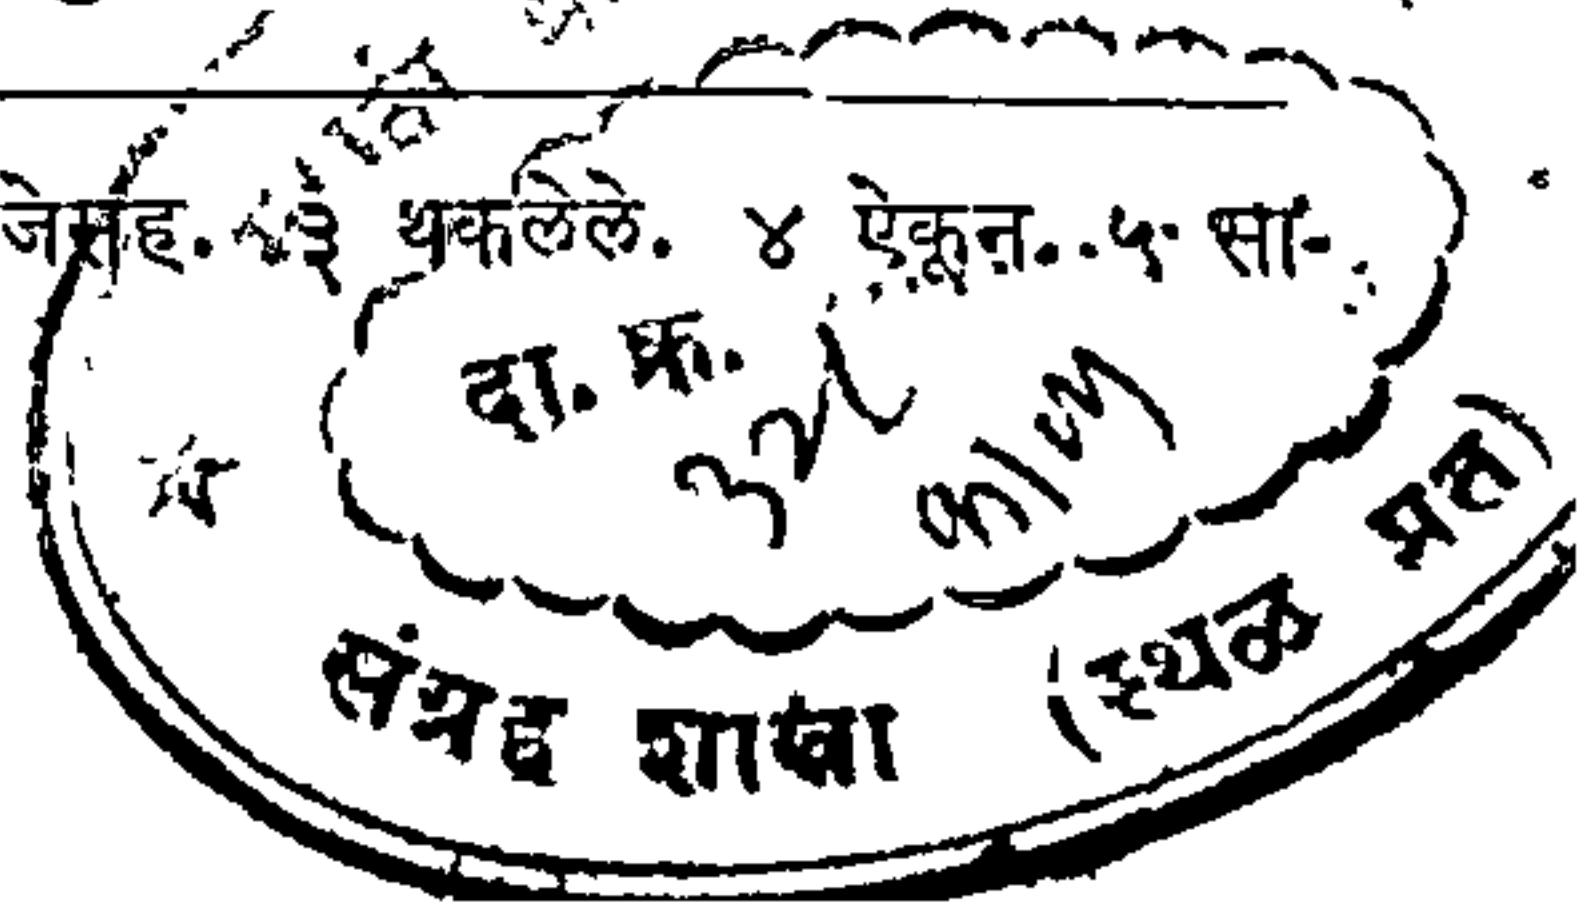 जेसह. ३ थकलेले. ४ ऐकून. ५ सां-
दा. क्र.
काव्य
संग्रह शाखा (स्थळ प्रत)